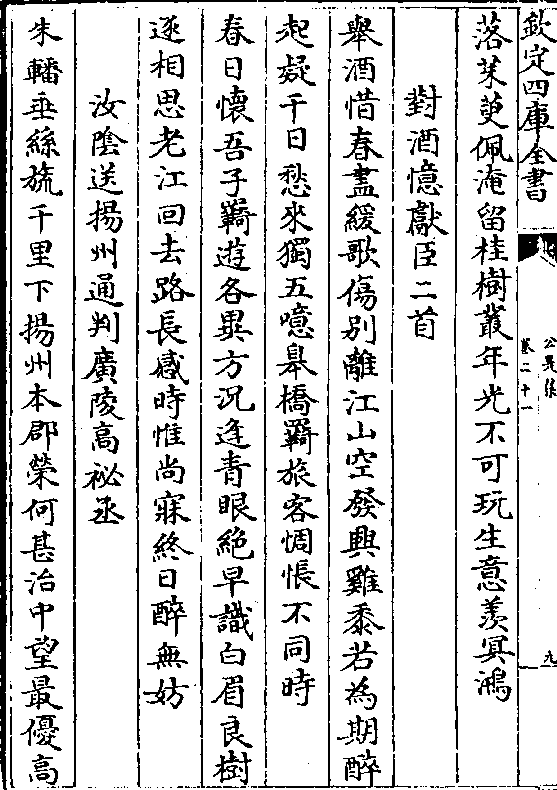 欽定四庫全書
公是集
卷二十一
九
落茱萸佩淹留桂樹叢年光不可玩生意羨冥鴻
對酒憶獻臣二首
舉酒惜春盡緩歌傷别離江山空發興雞黍若為期醉
起疑千日愁來獨五噫臯橋羇旅客惆悵不同時
春日懷吾子羇遊各異方況逢青眼絶早識白眉良樹
逐相思老江回去路長感時惟尚寐終日醉無妨
汝隂送揚州通判廣陵高祕丞
朱轓垂絲旒千里下揚州本郡榮何甚治中望最優高